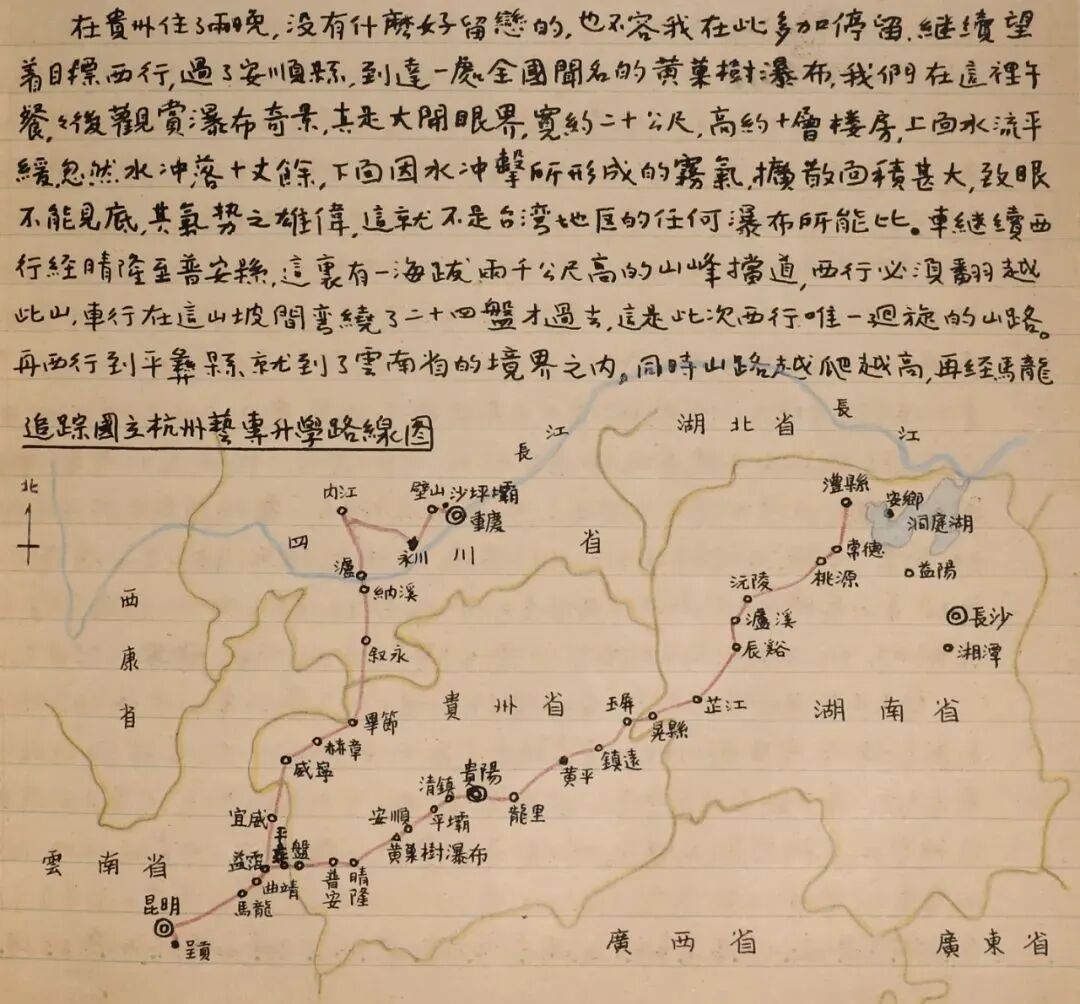 在貴州住了兩晚,没有什麽好留戀的,也不容我在此多加停留.継續望
着目標西行,過了安順縣,到達一處全國聞名的黄菓樹瀑布,我們在這裡午
餐,々後觀見賞瀑布奇景,真是大開眼界,寬約二十公尺,高約十層楼房,上面水流平
緩,忽然水冲落十丈餘,下面因水冲擊所形成的霧氣,擴散面積甚大,致眼
不能見底,其氣势之雄偉,這就不是台湾地区的任何瀑布所能比。車継續西
行経晴隆至普安縣,這裏有一海跋兩千公尺高的山峰擋道,西行必須翻越
此山,車行在這山坡間弯繞了二十四盤才過去,這是此次西行唯一迴旋的山路。
再西行到平彝縣,就到了雲南省的境界之内。同時山路越爬越高,再経馬龍
追踪國立杭州藝專升學路線図
長江
湖北省
長江
北
内江
璧山
沙坪壩
重慶
澧縣
安鄉
洞庭湖
四川省
永川
常德
桃源
益陽
瀘
納溪
沅陵
瀘溪
辰谿
長沙
湘潭
西康省
叙永
貴州省
玉屏
晃縣
芷江
湖南省
畢節
赫章
威寧
鎮遠
黄平
清鎮
貴陽
龍里
平壩
安順
黄菓樹瀑布
宜威
平彝
盤
普安
晴隆
益霑
曲靖
馬龍
雲南省
昆明
呈貢
廣西省
廣東省